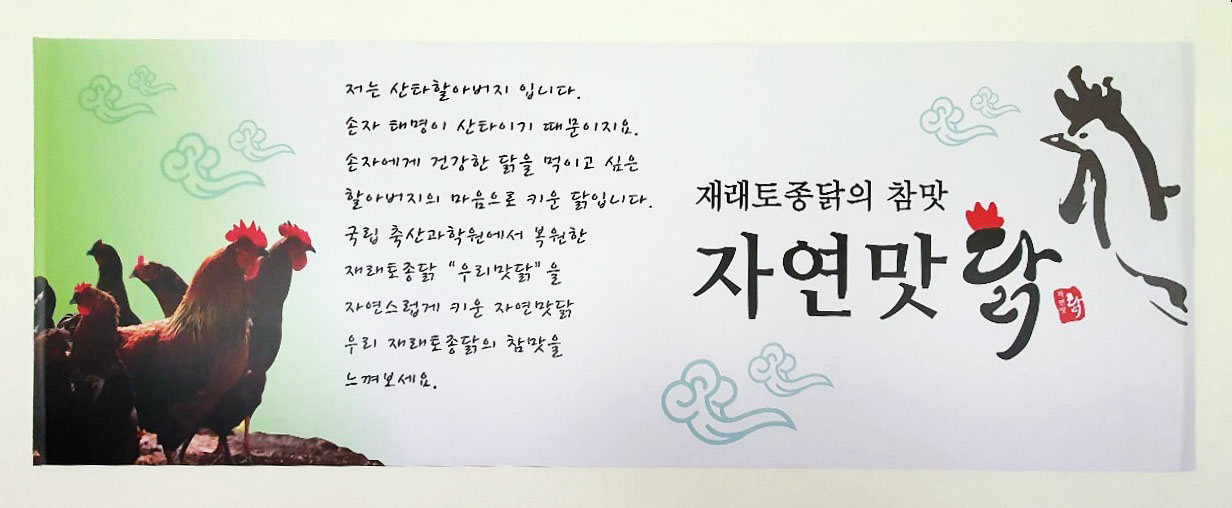 저는 산타할아버지 입니다.
손자 태명이 산타이기 때문이지요.
손자에게 건강한 닭을 먹이고 싶은
할아버지의 마음으로 키운 닭입니다.
국립 축산과학원에서 복원한
재래토종닭 "우리맛닭"을
자연스럽게 키운 자연맛닭
우리 재래토종닭의 참맛을
느껴보세요.
재래토종닭의 참맛
자연맛닭
자연맛닭